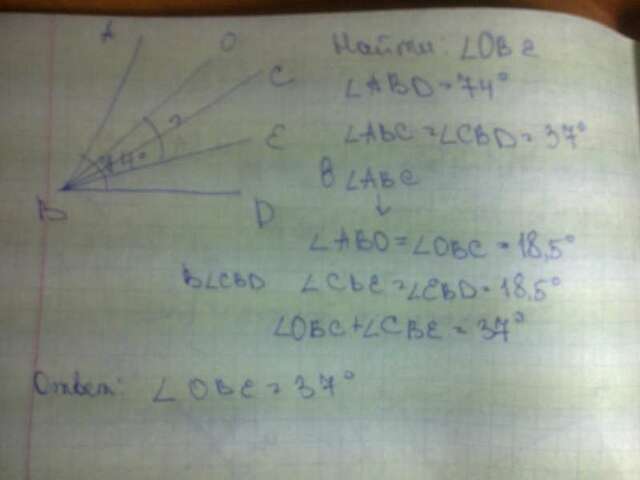 A O C E B D
74° ?
Найти: ∠OBE
∠ABD = 74°
∠ABC = ∠CBD = 37°
В ∠ABC
↓
∠ABO = ∠OBC = 18,5°
В ∠CBD ∠CBE = ∠EBD = 18,5°
∠OBC + ∠CBE = 37°
Ответ: ∠OBE = 37°